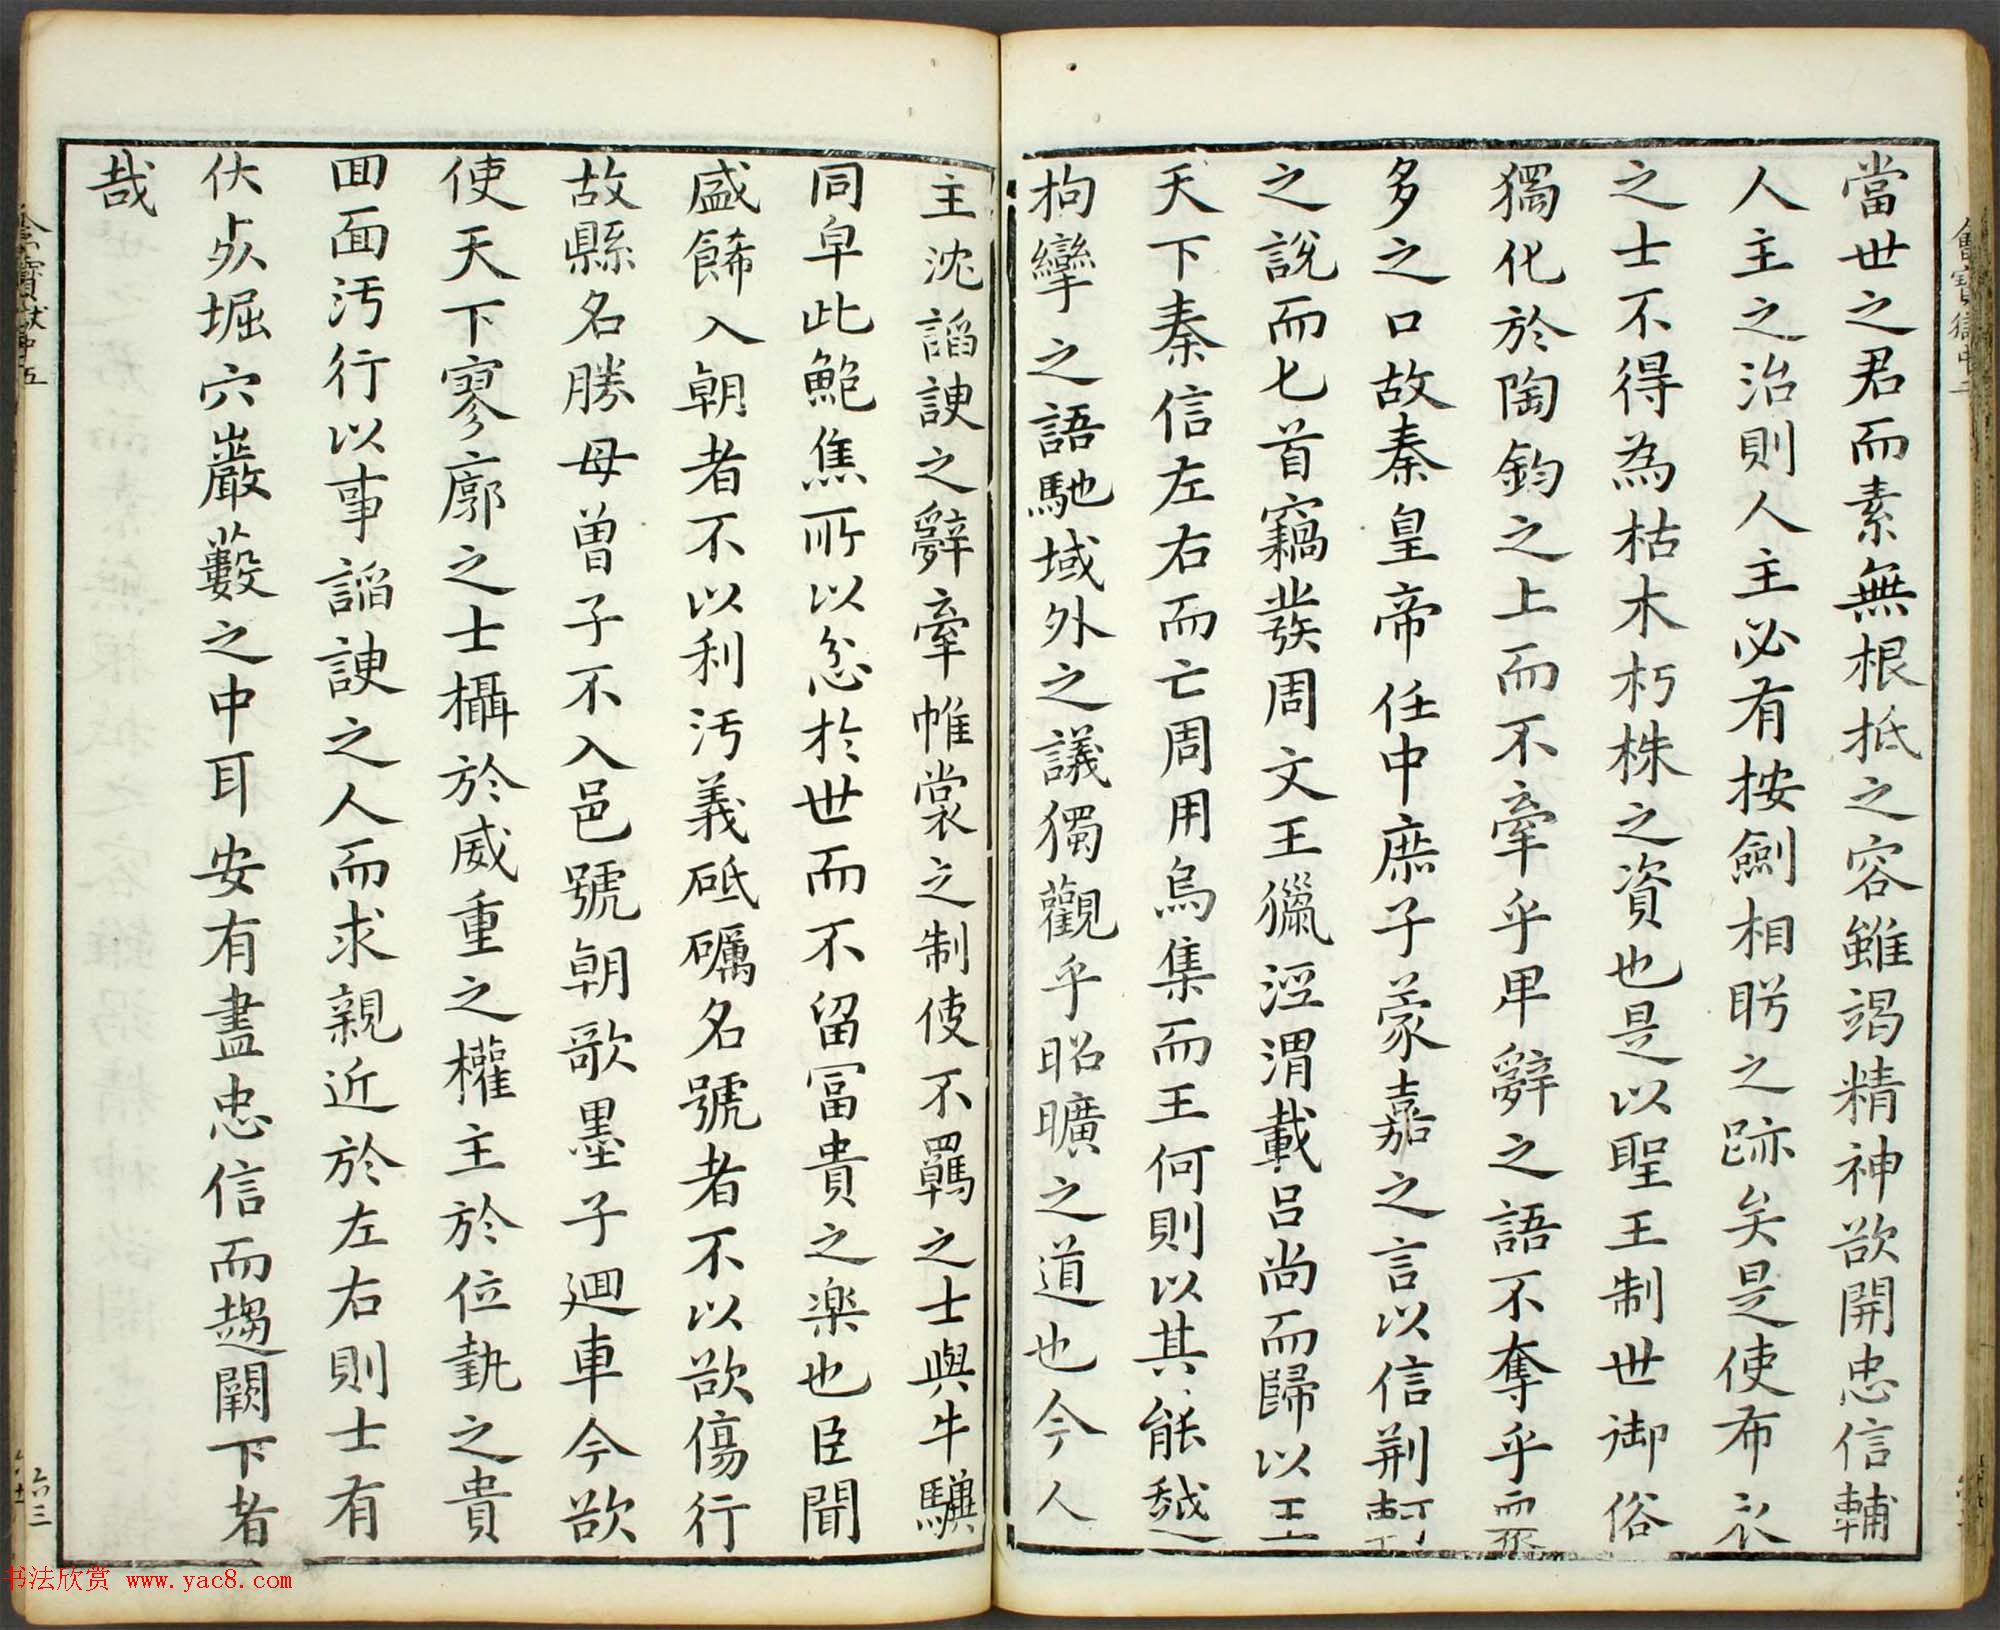 當世之君而素無根柢之容雖竭精神欲開忠信輔
人主之治則人主必有按劍相眄之跡矣是使布衣
之士不得為枯木朽株之資也是以聖王制世御俗
獨化於陶鈞之上而不牽乎卑辭之語不奪乎衆
多之口故秦皇帝任中庶子蒙嘉之言以信荆軻
之說而匕首竊發周文王獵涇渭載呂尚而歸以王
天下秦信左右而亡周用烏集而王何則以其能越
拘攣之語馳域外之議獨觀乎昭曠之道也今人
主沈諂諛之辭牽帷裳之制使不羈之士與牛驥
同皁此鮑焦所以忿於世而不留冨貴之楽也臣聞
盛餙入朝者不以利汚義砥礪名號者不以欲傷行
故縣名勝母曾子不入邑號朝歌墨子迴車今欲
使天下寥廓之士攝於威重之權主於位埶之貴
回面汚行以事諂諛之人而求親近於左右則士有
伏死堀穴巖藪之中耳安有盡忠信而趨闕下者
哉
书法欣赏 www.yac8.com